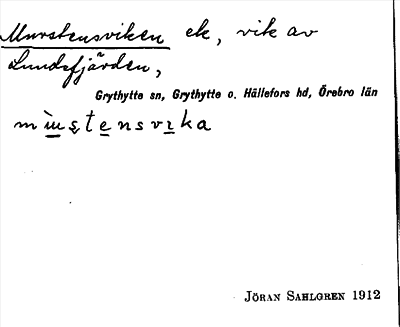 Murstensviken ek, vik av
Lundsfjärden,
Grythytte sn, Grythytte o. Hällefors hd, Örebro län
mùstensvıka
JÖRAN SAHLGREN 1912